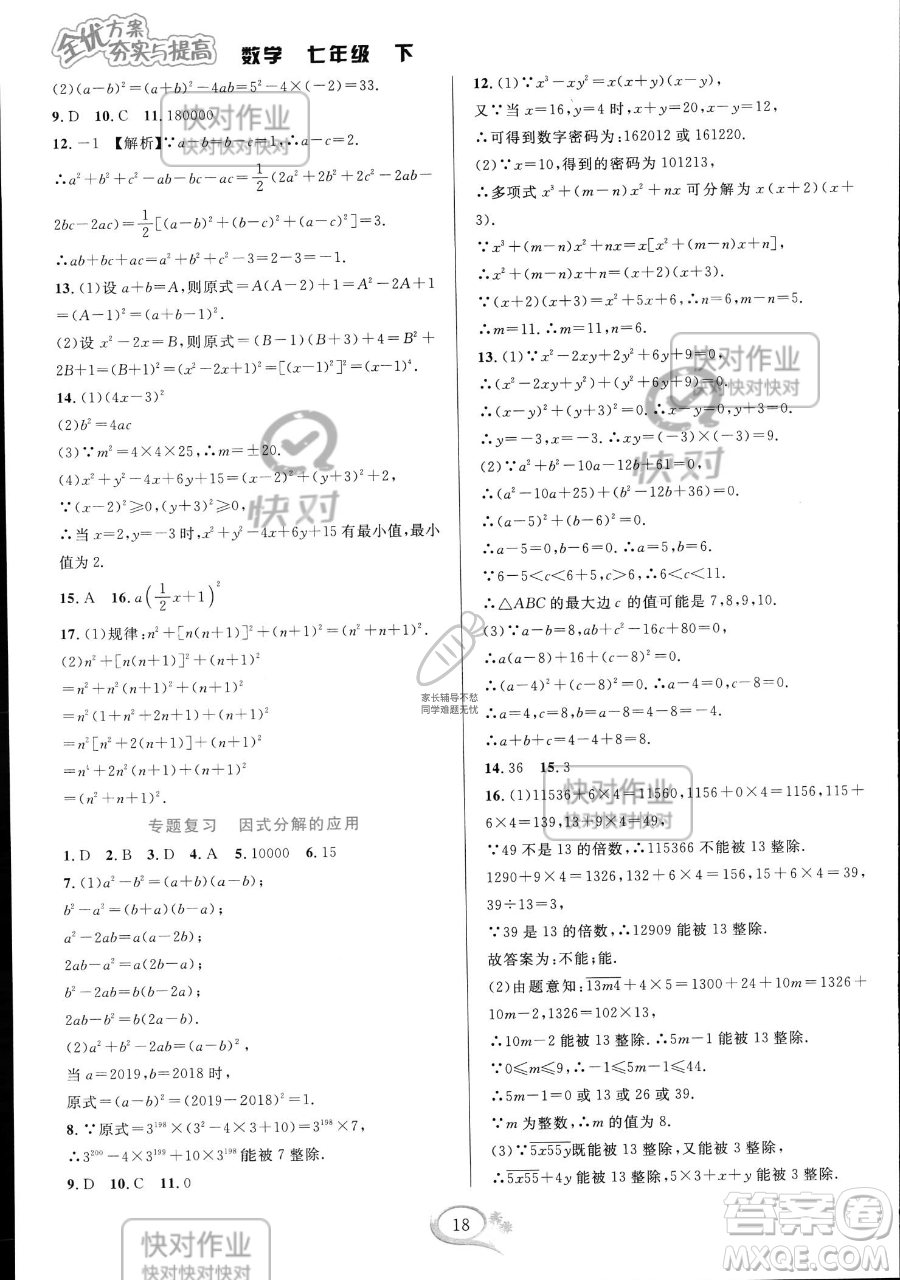 全优方案
夯实与提高
数学 七年级 下
(2)(a-b)²=(a+b)²-4ab=5²-4×(-2)=33.
9. D 10. C 11. 180000
12. -1 【解析】∵a-b=b-c=1,∴a-c=2.
∴a²+b²+c²-ab-bc-ac=1/2(2a²+2b²+2c²-2ab-
2bc-2ac)=1/2[(a-b)²+(b-c)²+(a-c)²]=3.
∴ab+bc+ac=a²+b²+c²-3=2-3=-1.
13. (1)设 a+b=A,则原式=A(A-2)+1=A²-2A+1=
(A-1)²=(a+b-1)².
(2)设 x²-2x=B,则原式=(B-1)(B+3)+4=B²+
2B+1=(B+1)²=(x²-2x+1)²=(x-1)⁴.
14. (1)(4x-3)²
(2)b²=4ac
(3)∵m²=4×4×25,∴m=±20.
(4)x²+y²-4x+6y+15=(x-2)²+(y+3)²+2.
∵(x-2)²≥0,(y+3)²≥0,
∴当 x=2,y=-3 时,x²+y²-4x+6y+15 有最小值,最小
值为 2.
15. A 16. a(1/2x+1)²
17. (1)规律:n²+[n(n+1)]²+(n+1)²=[n(n+1)+1]².
(2)n²+[n(n+1)]²+(n+1)²
=n²+n²(n+1)²+(n+1)²
=n²(1+n²+2n+1)+(n+1)²
=n²[n²+2(n+1)]+(n+1)²
=n⁴+2n²(n+1)+(n+1)²
=(n²+n+1)².
专题复习 因式分解的应用
1. D 2. B 3. D 4. A 5. 10000 6. 15
7. (1)a²-b²=(a+b)(a-b);
b²-a²=(b+a)(b-a);
a²-2ab=a(a-2b);
2ab-a²=a(2b-a);
b²-2ab=b(b-2a);
2ab-b²=b(2a-b).
(2)a²+b²-2ab=(a-b)²,
当 a=2019,b=2018 时,
原式=(a-b)²=(2019-2018)²=1.
8. ∵原式=3¹⁹⁸×(3²-4×3+10)=3¹⁹⁸×7,
∴3²⁰⁰-4×3¹⁹⁹+10×3¹⁹⁸能被 7 整除.
9. D 10. C 11. 0
12. (1)∵x³-xy²=x(x-y)(x+y),
又∵当 x=16,y=4 时,x+y=20,x-y=12,
∴可得到数字密码为:162012 或 161220.
(2)∵x=10,得到的密码为 101213,
∴多项式 x³+(m-n)x²+nx 可分解为 x(x+2)(x+
3).
∵x³+(m-n)x²+nx=x[x²+(m-n)x+n],
∴x²+(m-n)x+n=(x+2)(x+3).
∵(x+2)(x+3)=x²+5x+6,∴n=6,m-n=5.
∴m=11,∴m=11,n=6.
13. (1)∵x²-2xy+2y²+6y+9=0,
∴(x²-2xy+y²)+(y²+6y+9)=0.
∴(x-y)²+(y+3)²=0.∴x-y=0,y+3=0.
∴y=-3,x=-3.∴xy=(-3)×(-3)=9.
(2)∵a²-10a+b²-12b+61=0,
∴(a²-10a+25)+(b²-12b+36)=0.
∴(a-5)²+(b-6)²=0.
∴a-5=0,b-6=0.∴a=5,b=6.
∵6-5<c<6+5,c>6,∴6<c<11.
∴△ABC 的最大边 c 的值可能是 7,8,9,10.
(3)∵a-b=8,ab+c²-16c+80=0,
∴a(a-8)+16+(c-8)²=0.
∴(a-4)²+(c-8)²=0.∴a-4=0,c-8=0.
∴a=4,c=8,b=a-8=4-8=-4.
∴a+b+c=4-4+8=8.
14. 36 15. 3
16. (1)11536+6×4=11560,1156+0×4=1156,115+
6×4=139,13+9×4=49,
∵49 不是 13 的倍数,∴115366 不能被 13 整除.
1290+9×4=1326,132+6×4=156,15+6×4=39,
39÷13=3,
∵39 是 13 的倍数,∴12909 能被 13 整除.
故答案为:不能;能.
(2)由题意知:13m4+4×5=1300+24+10m=1326+
10m-2,1326=102×13,
∴10m-2 能被 13 整除.∴5m-1 能被 13 整除.
∵0≤m≤9,∴-1≤5m-1≤44.
∴5m-1=0 或 13 或 26 或 39.
∵m 为整数,∴m 的值为 8.
(3)∵5x55y既能被 13 整除,又能被 3 整除,
∴5x55+4y 能被 13 整除,5×3+x+y 能被
家长辅导不愁
同学难题无忧
18
快对作业
快对快对快对
快对
快对作业
快对快对快对
快对作业
快对快对快对
快对作业
快对快对快对
答案圈
MXQE.COM